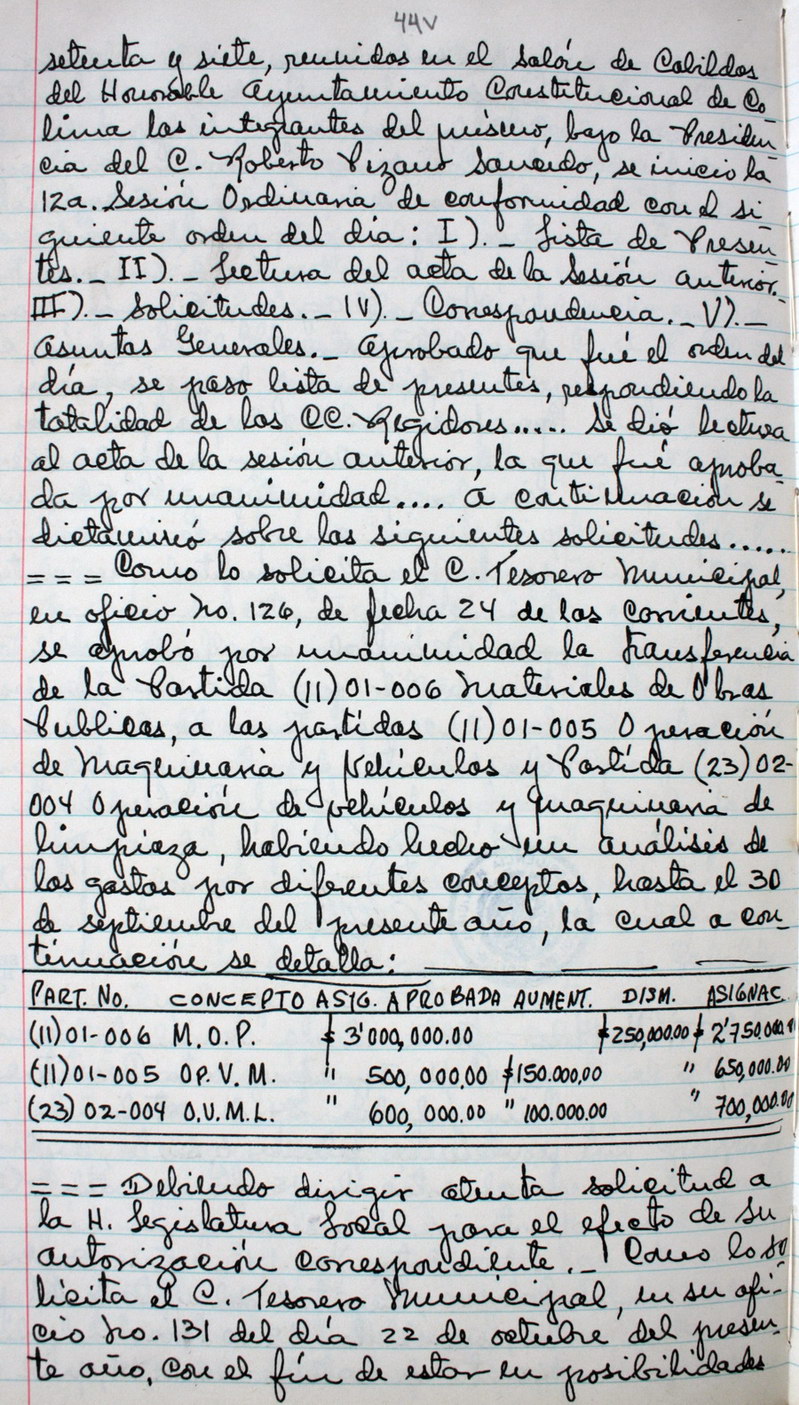 44v
setenta y siete, reunidos en el Salón de Cabildos
del Honorable Ayuntamiento Constitucional de Co
lima los integrantes del mismo, bajo la Presiden
cia del C. Roberto Pizano Saucedo, se inicio la
12a. Sesión Ordinaria de conformidad con el si
guiente orden del día: I).- Lista de Presen
tes.- II).- Lectura del acta de la Sesión anterior.
III).- Solicitudes.- IV).- Correspondencia.- V).-
Asuntos Generales.- Aprobado que fué el orden del
día, se paso lista de presentes, respondiendo la
totalidad de los CC. Regidores..... Se dió lectura
al acta de la sesión anterior, la que fué aproba-
da por unanimidad.... A continuación se
dictaminó sobre las siguientes solicitudes......
= = = Como lo solicita el C. Tesorero Municipal,
en oficio No. 126, de fecha 24 de los corrientes,
se aprobó por unanimidad la transferencia
de la Partida (11) 01-006 Materiales de Obras
Publicas, a las partidas (11) 01-005 Operación
de Maquinaria y Vehículos y Partida (23) 02-
004 Operación de vehículos y maquinaria de
limpieza, habiendo hecho un análisis de
los gastos por diferentes conceptos, hasta el 30
de septiembre del presente año, la cual a con-
tinuación se detalla:
PART. No. CONCEPTO ASIG. APROBADA AUMENT. DISM. ASIGNAC.
(11) 01-006 M.O.P. $ 3'000,000.00 $250,000.00 $ 2'750.000.00
(11) 01-005 OP. V. M. " 500,000.00 $150.000,00 " 650,000.00
(23) 02-004 O.V.M.L. " 600,000.00 " 100.000.00 " 700,000.00
= = = Debiendo dirigir atenta solicitud a
la H. Legislatura Local para el efecto de su
autorización correspondiente.- Como lo so
licita el C. Tesorero Municipal, en su ofi-
cio No. 131 del día 22 de octubre del presen-
te año, con el fín de estar en posibilidades